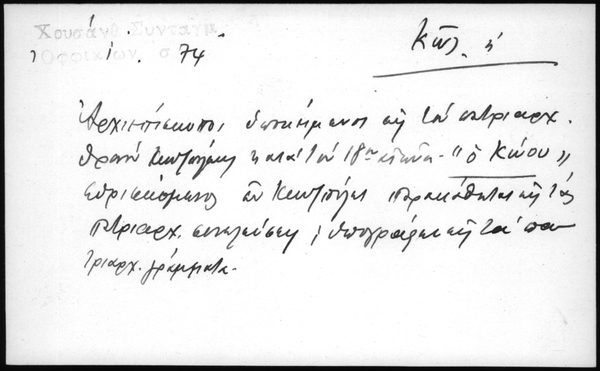 Χρυσάνθ. Συνταγμ.
Ὀφφικίων, σ. 74
Κῶς, ἡ
Ἀρχιεπίσκοποι ὑποκείμενοι εἰς τὸν πατριαρχ.
θρόνον Κωνσ/πόλεως κατὰ τὸν 18ον αἰῶνα - "ὁ Κώου"
εὑρισκόμενος ἐν Κων/πόλει παρακάθηται εἰς τὰς
πατριαρχ. συνελεύσεις, ὑπογράφει εἰς τὰ πα-
τριαρχ. γράμματα.